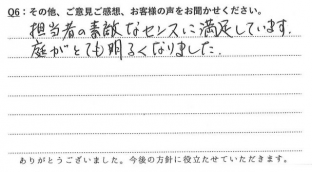 Q6：その他、ご意見ご感想、お客様の声をお聞かせください。
担当者の素敵なセンスに満足しています.
庭がとても明るくなりました.
ありがとうございました。今後の方針に役立たせていただきます。